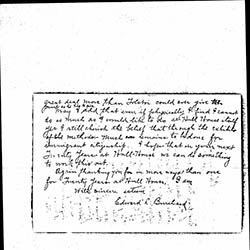 great deal more than Tolstoi could ever give the
May I add that even if physically I find I cannot
do as much as I would like to do at Hull House still
yet I still cherish the belief that through the
of the methods much can be done for
immigrant citizenship. I hope that in your next
Twenty Years at Hull-House we can do something
to work this out.
Again thanking you for in more ways than one
for Twenty Years at Hull House, I am
With sincere
Edward L.